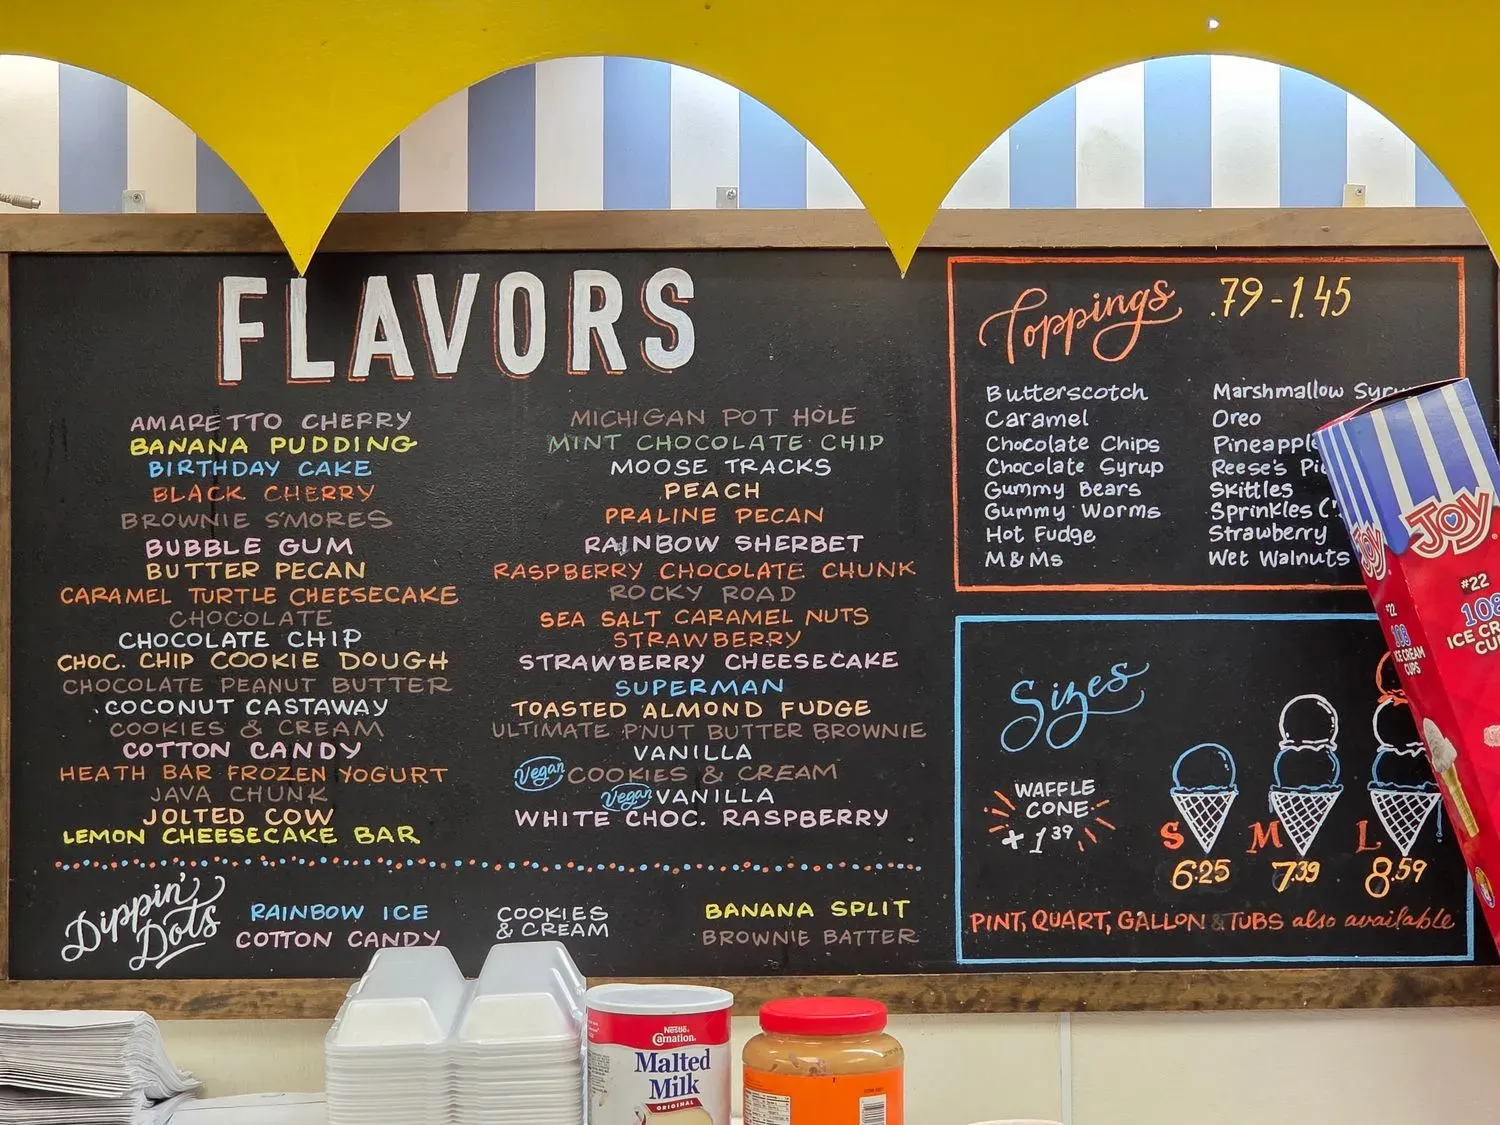 FLAVORS
AMARETTO CHERRY
BANANA PUDDING
BIRTHDAY CAKE
BLACK CHERRY
BROWNIE S'MORES
BUBBLE GUM
BUTTER PECAN
CARAMEL TURTLE CHEESECAKE
CHOCOLATE
CHOCOLATE CHIP
CHOC. CHIP COOKIE DOUGH
CHOCOLATE PEANUT BUTTER
COCONUT CASTAWAY
COOKIES & CREAM
COTTON CANDY
HEATH BAR FROZEN YOGURT
JAVA CHUNK
JOLTED COW
LEMON CHEESECAKE BAR
MICHIGAN POT HOLE
MINT CHOCOLATE CHIP
MOOSE TRACKS
PEACH
PRALINE PECAN
RAINBOW SHERBET
RASPBERRY CHOCOLATE CHUNK
ROCKY ROAD
SEA SALT CARAMEL NUTS
STRAWBERRY
STRAWBERRY CHEESECAKE
SUPERMAN
TOASTED ALMOND FUDGE
ULTIMATE P'NUT BUTTER BROWNIE
VANILLA
Vegan COOKIES & CREAM
Vegan VANILLA
WHITE CHOC. RASPBERRY
Dippin' Dots
RAINBOW ICE
COTTON CANDY
COOKIES
& CREAM
BANANA SPLIT
BROWNIE BATTER
Toppings .79-1.45
Butterscotch
Caramel
Chocolate Chips
Chocolate Syrup
Gummy Bears
Gummy Worms
Hot Fudge
M&Ms
Marshmallow
Oreo
Pineapple
Reese's
Skittles
Sprinkles
Strawberry
Wet Walnuts
Sizes
WAFFLE
CONE
+1.39
S M L
6.25 7.39 8.59
PINT, QUART, GALLON & TUBS also available
JOY
JOY
#22
ICE CREAM
CUPS
#22
Nestlé
Carnation
Malted
Milk
ORIGINAL